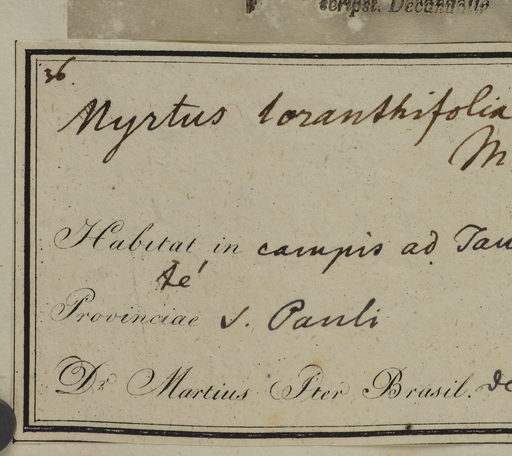 script. Decandolle
36.
Myrtus loranthifolia
M
Habitat in campis ad Tau
té
Provinciae S. Pauli
Dr. Martius Iter Brasil. de